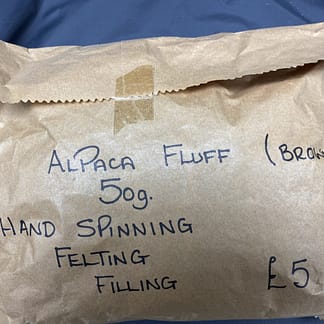 ALPACA FLUFF (BROW
50g.
HAND SPINNING
FELTING
FILLING £5